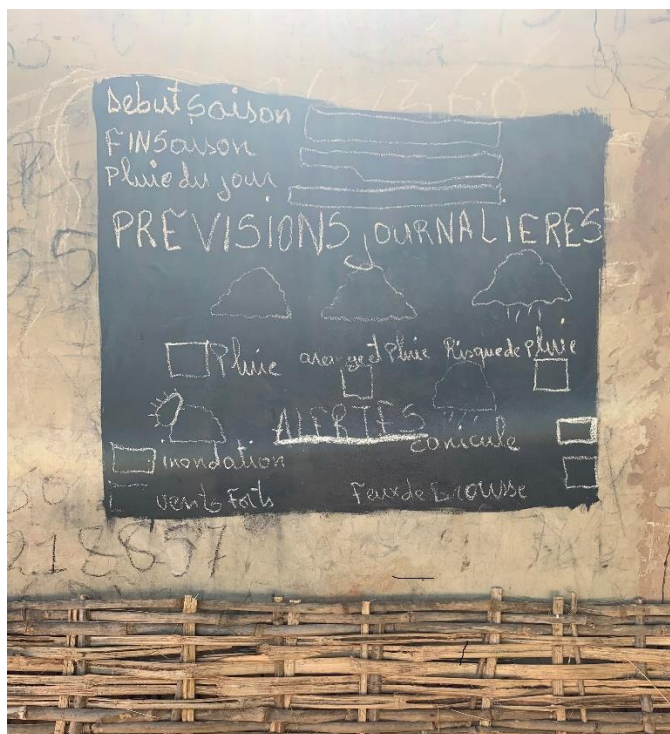 Debut Saison
FIN Saison
Pluie du jour
PREVISIONS JOURNALIERES
Pluie orange et Pluie Risque de pluie
ALERTES
canicule
inondation
vents Forts Feux de Brousse
218857